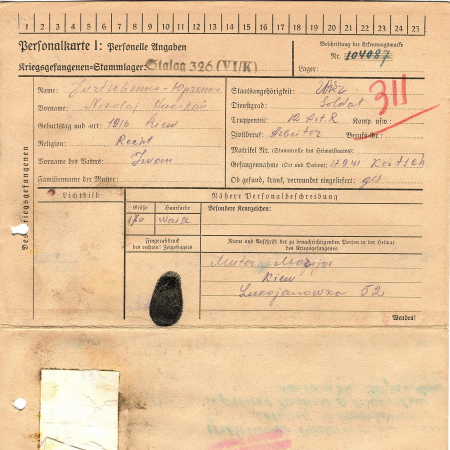 1 2 3 4 5 6 7 8 9 10 11 12 13 14 15 16 17 18 19 20 21 22 23 24 25
Personalkarte I: Personelle Angaben
Kriegsgefangenen-Stammlager: Stalag 326 (VI/K)
Beschriftung der Erkennungsmarke
Nr. 104087
Lager:
Des Kriegsgefangenen
Name:
Vorname: Nikolaj
Geburtstag und -ort: 1916 Kiew
Religion: Recht
Vorname des Vaters: Iwan
Familienname der Mutter:
Staatsangehörigkeit:
Dienstgrad: Soldat
Truppenteil: Komp. usw.:
Zivilberuf: Arbeiter Berufs-Gr.:
Matrikel Nr. (Stammrolle des Heimatstaates):
Gefangennahme (Ort und Datum): 17.9.41
Ob gesund, krank, verwundet eingeliefert: ges
311
Lichtbild
Nähere Personalbeschreibung
Größe Haarfarbe
170
Besondere Kennzeichen:
Fingerabdruck
des rechten! Zeigefingers
Name und Anschrift der zu benachrichtigenden Person in der Heimat
des Kriegsgefangenen
Mutter
Kiew
Lukojanowka 52
Wenden!